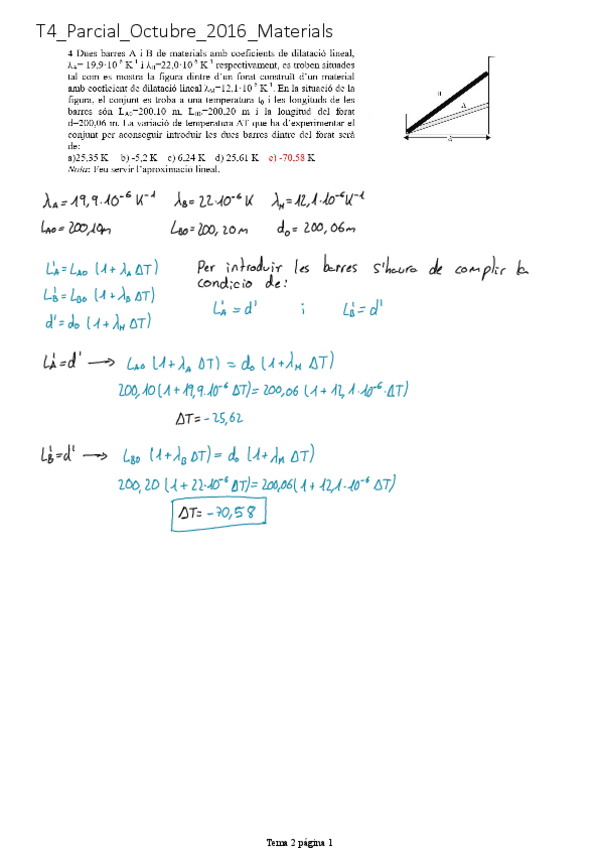 T4_Parcial_Octubre_2016_Materials
4 Dues barres A i B de materials amb coeficients de dilatació lineal,
λA= 19,9·10⁻⁶ K⁻¹ i λB=22,0·10⁻⁶ K⁻¹ respectivament, es troben situades
tal com es mostra la figura dintre d'un forat construït d'un material
amb coeficient de dilatació lineal λM=12,1·10⁻⁶ K⁻¹. En la situació de la
figura, el conjunt es troba a una temperatura t₀ i les longituds de les
barres són LA0=200,10 m, LB0=200,20 m i la longitud del forat
d=200,06 m. La variació de temperatura ΔT que ha d'experimentar el
conjunt per aconseguir introduir les dues barres dintre del forat serà
de:
a)25,35 K b) -5,2 K c) 6,24 K d) 25,61 K e) -70,58 K
Nota: Feu servir l'aproximació lineal.
B
A
d
λA = 19,9·10⁻⁶ K⁻¹ λB = 22·10⁻⁶ K λM = 12,1·10⁻⁶ K⁻¹
LA0 = 200,10m LB0 = 200,20m d₀ = 200,06m
L'A = LA0 (1+λA ΔT) Per introduir les barres s'haura de complir la
L'B = LB0 (1+λB ΔT) condicio de:
d' = d₀ (1+λM ΔT) L'A = d' i L'B = d'
L'A = d' → LA0 (1+λA ΔT) = d₀ (1+λM ΔT)
200,10(1+19,9·10⁻⁶ ΔT) = 200,06 (1+12,1·10⁻⁶·ΔT)
ΔT = -25,62
L'B = d' → LB0 (1+λB ΔT) = d₀ (1+λM ΔT)
200,20 (1+22·10⁻⁶ ΔT) = 200,06(1+12,1·10⁻⁶ ΔT)
ΔT = -70,58
Tema 2 página 1